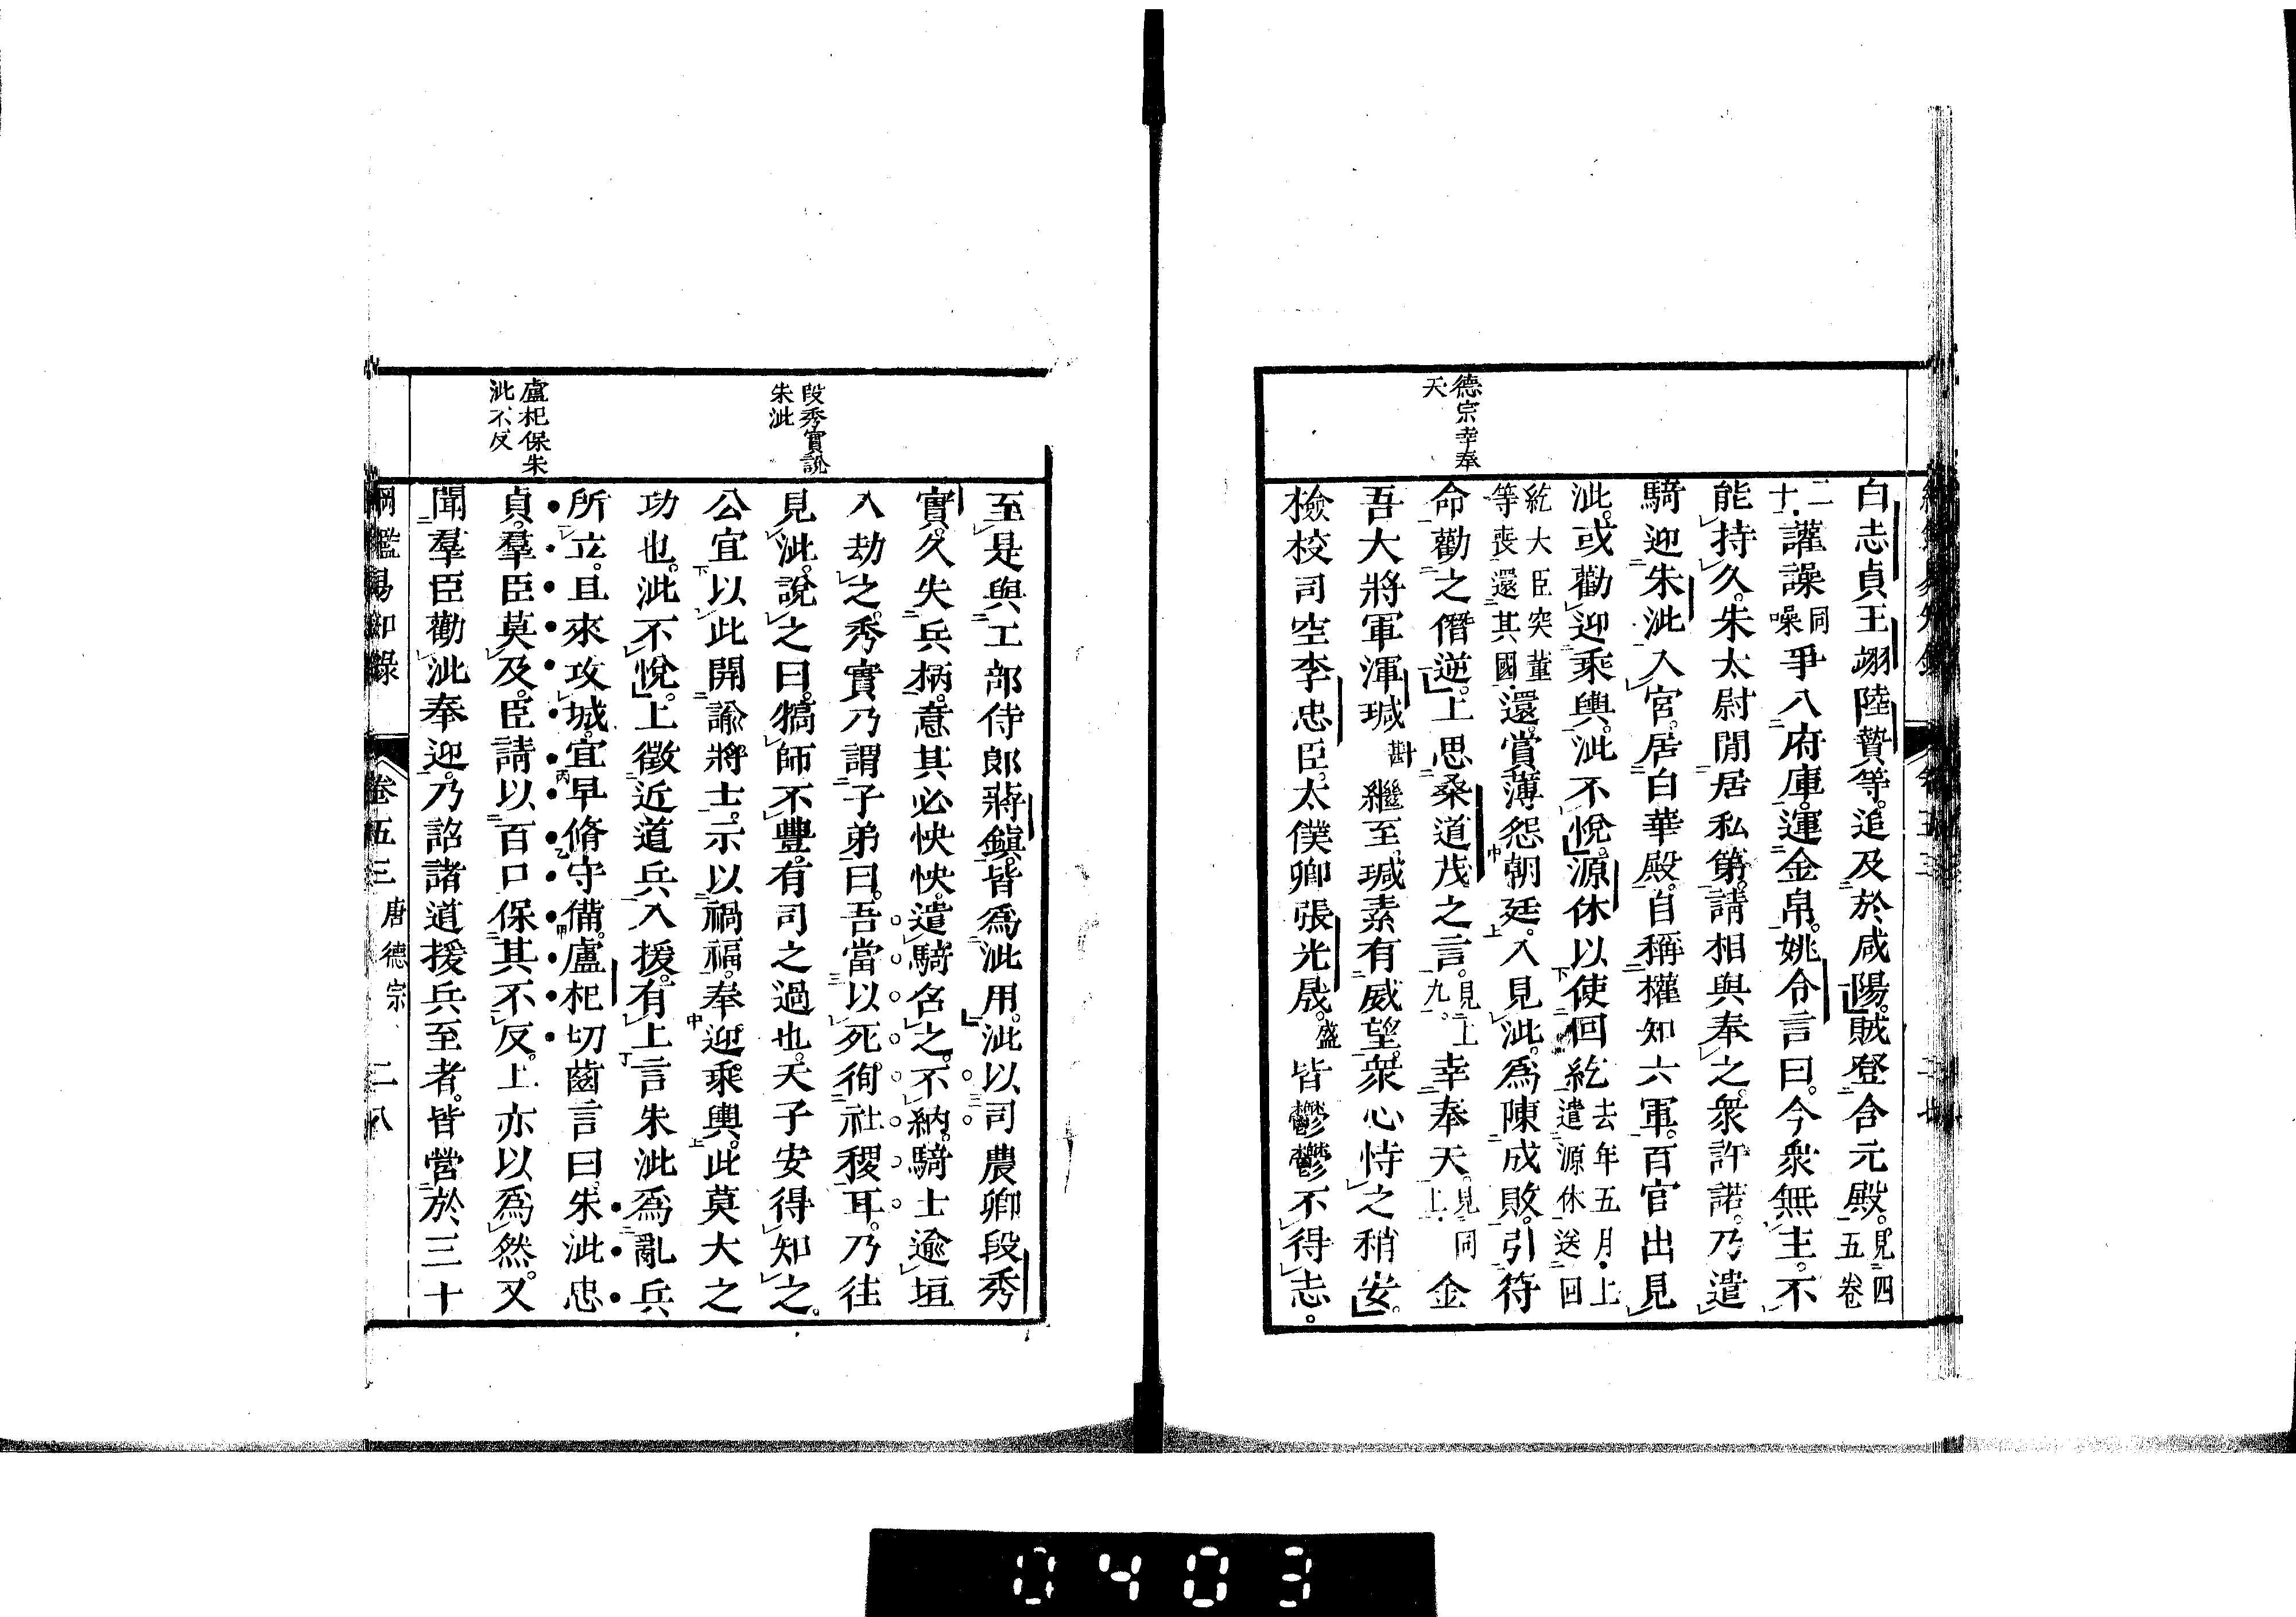 德宗幸奉
天
白志貞王翃陸贄等。追及於咸陽。賊登含元殿。見四
五卷
二
十。讙譟同
噪爭入府庫。運金帛。姚令言曰。今衆無主。不
能持久。朱太尉閒居私第。請相與奉之。衆許諾。乃遣
騎迎朱泚入宮。居白華殿。自稱權知六軍。百官出見
泚。或勸迎乘輿。泚不悅。源休以使回紇去年五月。上
遣源休送回
紇大臣突董
等喪還其國。還。賞薄怨朝廷。入見泚。爲陳成敗。引符
命勸之僭逆。上思桑道茂之言。見上
九。幸奉天。見同
上。金
吾大將軍渾瑊斟繼至。瑊素有威望。衆心恃之稍安。
檢校司空李忠臣。太僕卿張光晟。盛皆鬱鬱不得志。
段秀實說
朱泚
盧杞保朱
泚不反
至是與工部侍郎蔣鎮。皆爲泚用。泚以司農卿段秀
實。久失兵柄。意其必怏怏。遣騎名之。不納。騎士逾垣
入劫之。秀實乃謂子弟曰。吾當以死徇社稷耳。乃往
見泚。說之曰。犒師不豐。有司之過也。天子安得知之。
公宜以此開諭將士。示以禍福。奉迎乘輿。此莫大之
功也。泚不悅。上徵近道兵入援。有上言朱泚爲亂兵
所立。且來攻城。宜早脩守備。盧杞切齒言曰。朱泚忠
貞。羣臣莫及。臣請以百口保其不反。上亦以爲然。又
聞羣臣勸泚奉迎。乃詔諸道援兵至者。皆營於三十
綱鑑易知錄 卷五三 唐德宗 二八
0403